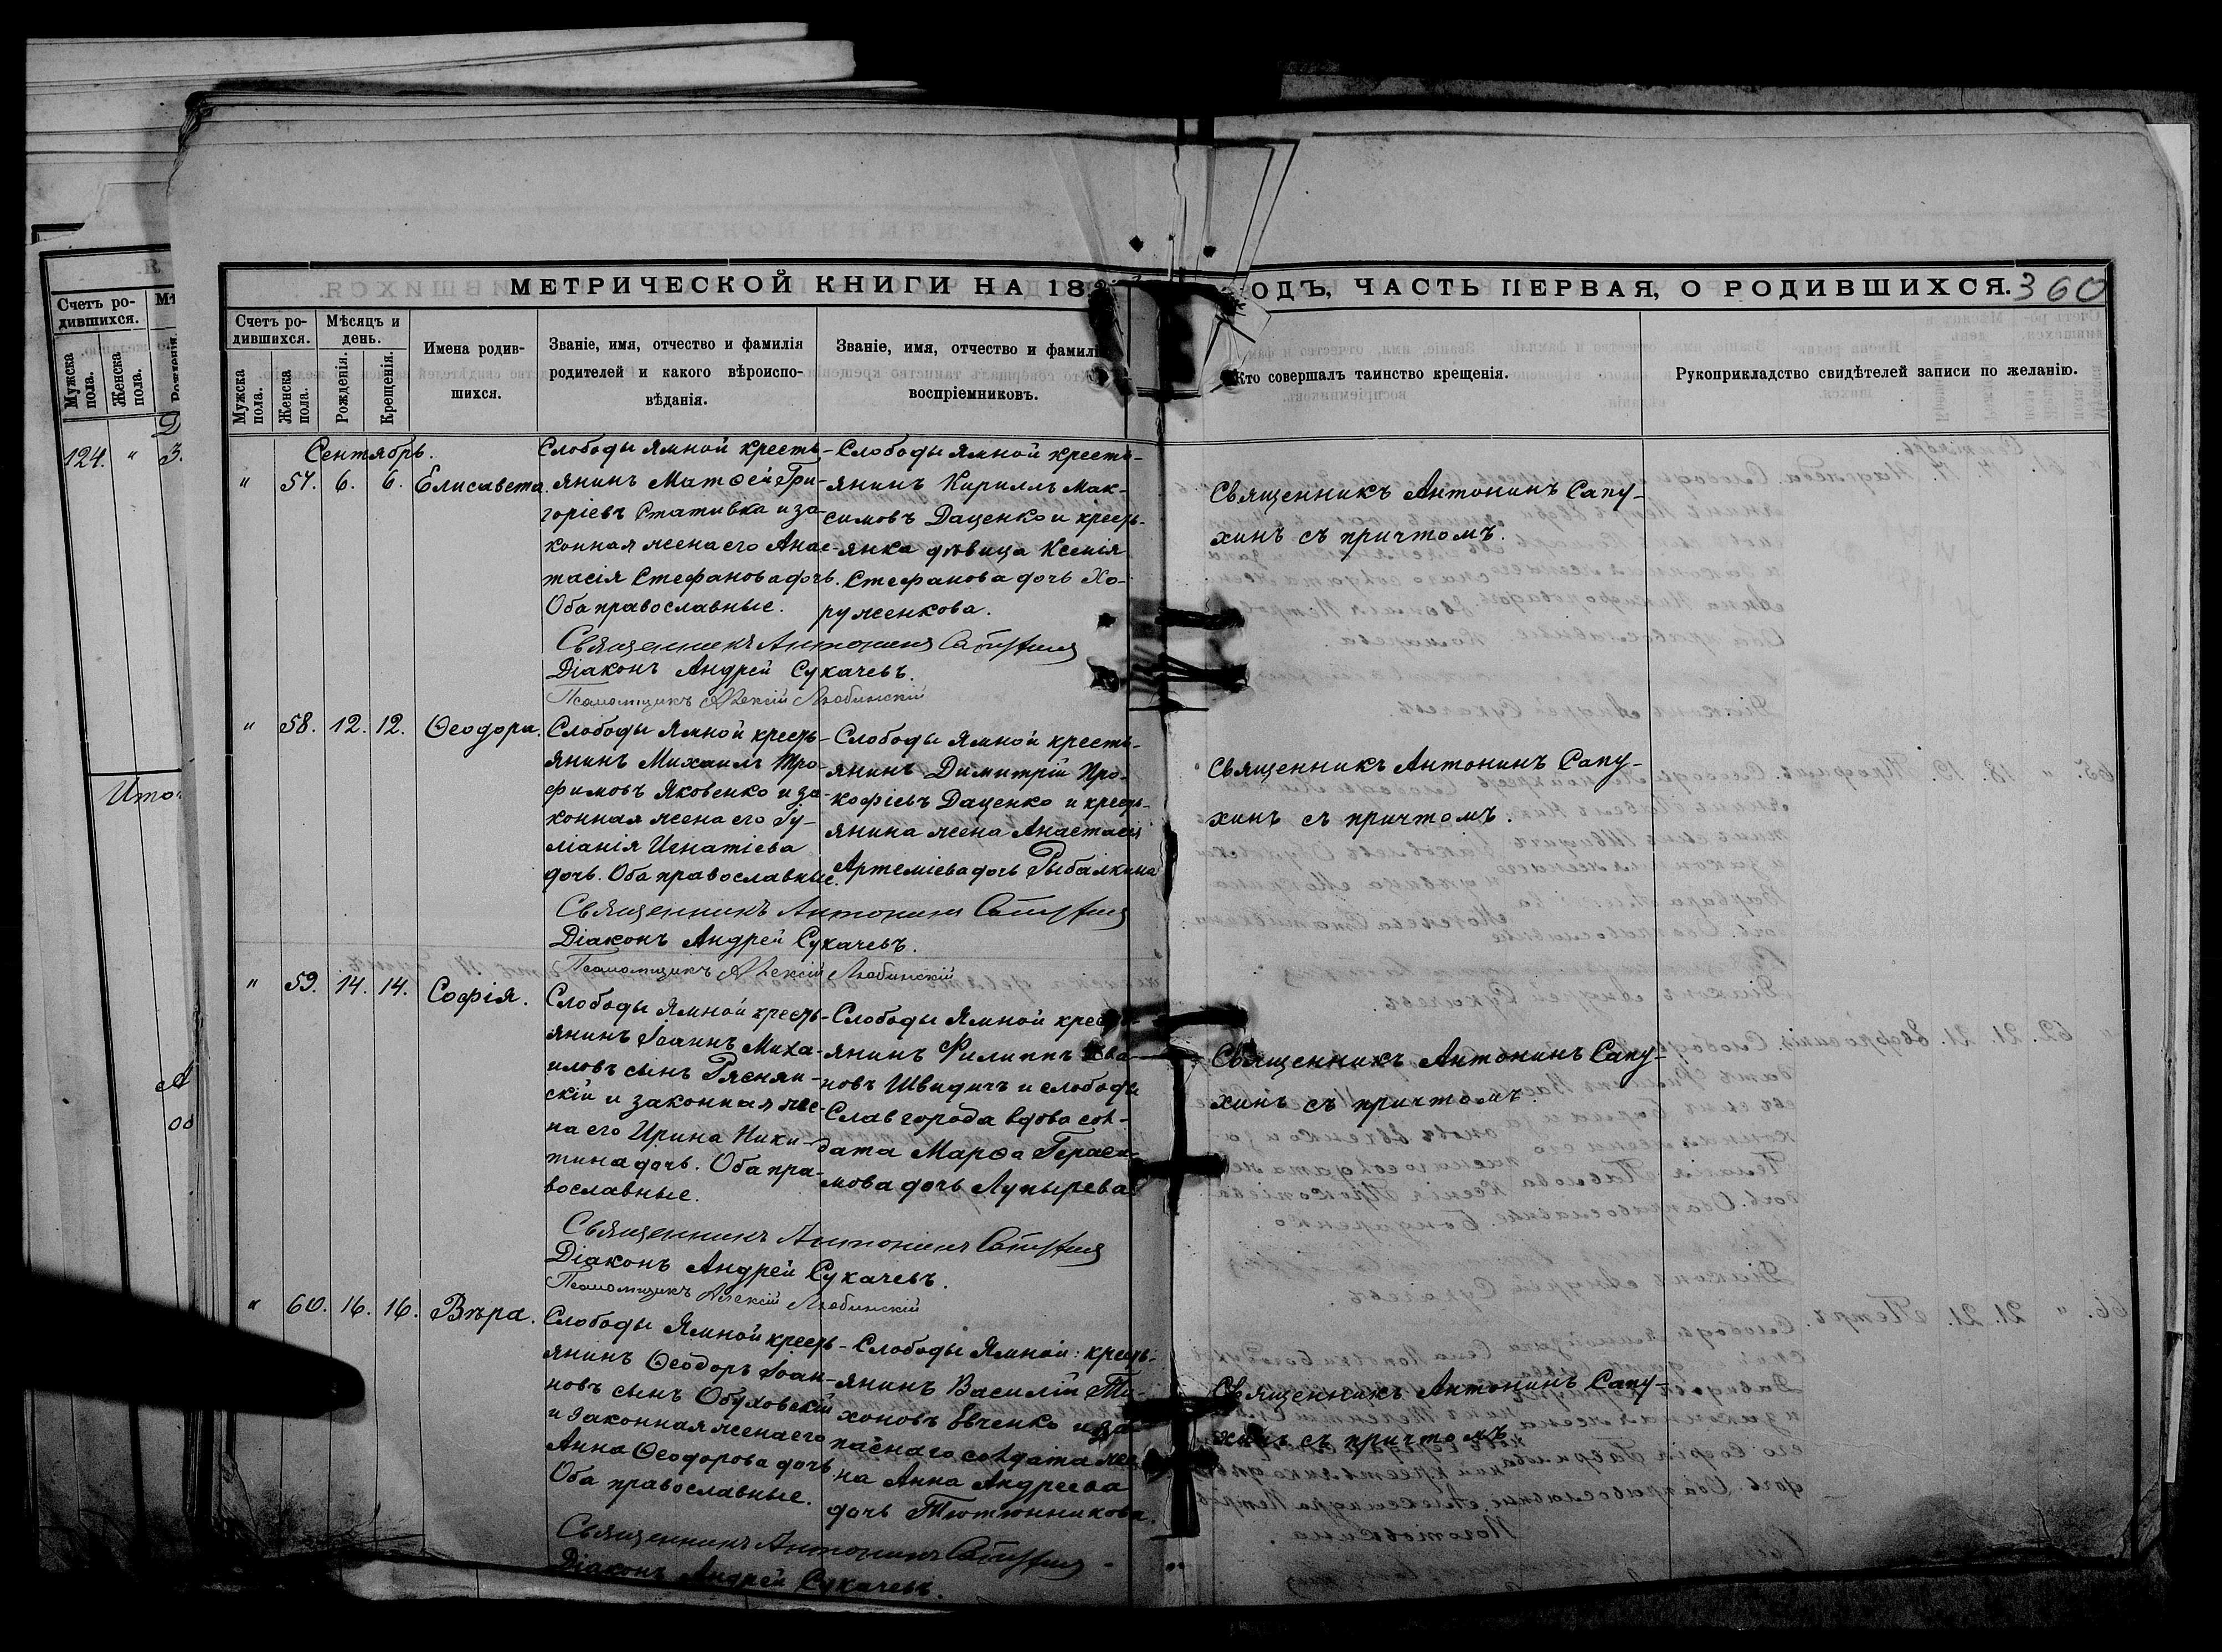 МЕТРИЧЕСКОЙ КНИГИ НА 18
ОДЪ, ЧАСТЬ ПЕРВАЯ, О РОДИВШИХСЯ.
360
Счетъ ро-
дившихся.
Мужска
пола.
Женска
пола.
124. " 3.
Счетъ ро-
дившихся.
Мужска
пола.
Женска
пола.
Мѣсяцъ и
день.
Рожденія.
Крещенія.
Имена родив-
шихся.
Званіе, имя, отчество и фамилія
родителей и какого вѣроиспо-
вѣданія.
Званіе, имя, отчество и фамилі
воспріемниковъ.
Кто совершалъ таинство крещенія.
Рукоприкладство свидѣтелей записи по желанію.
Сентябрь.
" 57. 6. 6. Елисавета.
Слободы Ямной кресть-
янинъ Матѳей Гри-
горіевъ Стативка и за-
конная жена его Анас-
тасія Стефанова дочь.
Оба православные.
Слободы Ямной кресть-
янинъ Кириллъ Мак-
симовъ Даценко и кресть-
янка дѣвица Ксенія
Стефанова дочь Хо-
руженкова.
Священникъ Антонинъ Сапу-
хинъ съ причтомъ.
Священникъ Антонинъ Сапухинъ
Діаконъ Андрей Сукачевъ.
Псаломщикъ Алексій Любинскій
" 58. 12. 12. Ѳеодора.
Слободы Ямной кресть-
янинъ Михаилъ Тро-
фимовъ Яковенко и за-
конная жена его Іу-
ліанія Игнатіева
дочь. Оба православные.
Слободы Ямной кресть-
янинъ Димитрій Про-
кофіевъ Даценко и кресть-
янина жена Анастасія
Артеміева дочь Рыбалкина
Священникъ Антонинъ Сапу-
хинъ съ причтомъ.
Священникъ Антонинъ Сапухинъ
Діаконъ Андрей Сукачевъ.
Псаломщикъ Алексій Любинскій
" 59. 14. 14. Софія.
Слободы Ямной кресть-
янинъ Іоаннъ Миха-
иловъ сынъ Ряснян-
скій и законная же-
на его Ирина Ники-
тина дочь. Оба пра-
вославные.
Слободы Ямной кресть-
янинъ Филиппъ Ива-
новъ Швидичъ и слободы
Славгорода вдова сол-
дата Марѳа Гераси-
мова дочь Лупырева
Священникъ Антонинъ Сапу-
хинъ съ причтомъ.
Священникъ Антонинъ Сапухинъ
Діаконъ Андрей Сукачевъ.
Псаломщикъ Алексій Любинскій
" 60. 16. 16. Вѣра.
Слободы Ямной кресть-
янинъ Ѳеодоръ Іоан-
новъ сынъ Обуховскій
и законная жена его
Анна Ѳеодорова дочь
Оба православные.
Слободы Ямной: кресть-
янинъ Василій Ти-
хоновъ Евченко и за-
паснаго солдата же-
на Анна Андреева
дочь Тютюнникова.
Священникъ Антонинъ Сапу-
хинъ съ причтомъ
Священникъ Антонинъ Сапухинъ
Діаконъ Андрей Сукачевъ.